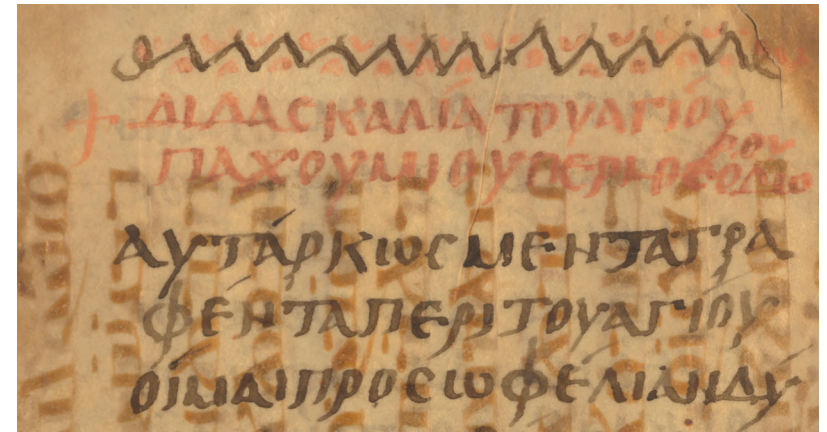 + ΔΙΔΑϹΚΑΛΙΑΤΟΥΑΓΙΟΥ
ΠΑΧΟΥΜΙΟΥΠΕΡΙ
ΑΥΤΑΡΚΙωϹΜΕΝΤΑΓΡΑ
ΦΕΝΤΑΠΕΡΙΤΟΥΑΓΙΟΥ
ΟΙΜΑΙΠΡΟϹωΦΕΛΙΑΝΔΥ